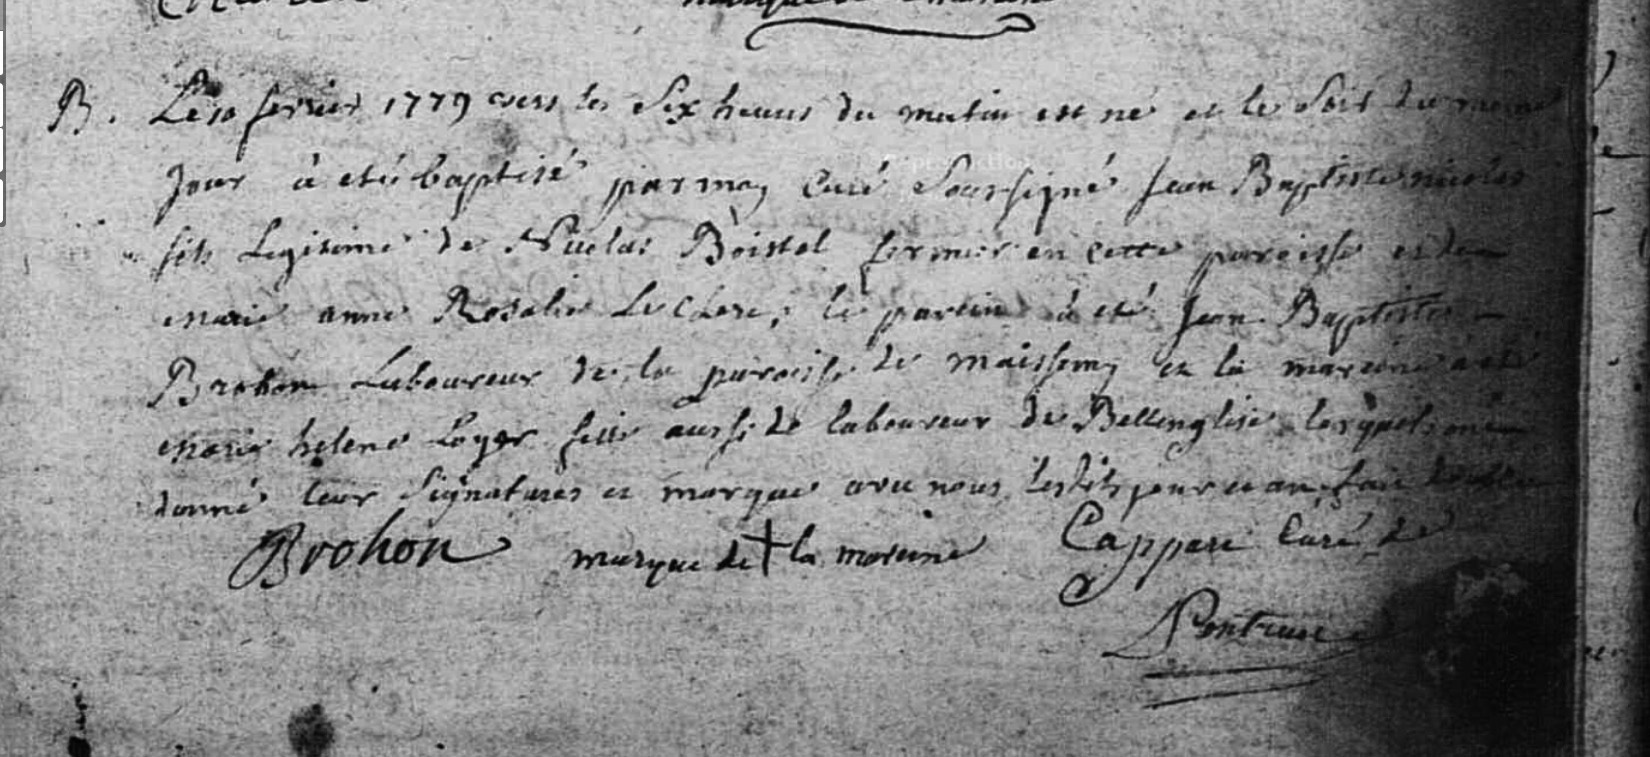 B. Le 10 fevrier 1779 vers les Six heures du matin est né et le Soir du meme
jour à eté baptisé par moy Curé Soussigné Jean Baptiste nicolas
fils Legitime de Nicolas Boistel fermier en cette paroisse et de
marie anne Rosalie Le Clere, le parein à eté Jean Baptiste
Brohon Laboureur de la paroisse de maissemy et la mareine a eté
marie helene Loyer fille aussi de laboureur de Bellenglise lesquels ont
donné leur Signatures et marque avec nous lesdits jour et an fait double
Brohon marque de + la mareine Cappere Curé de
Pontruet